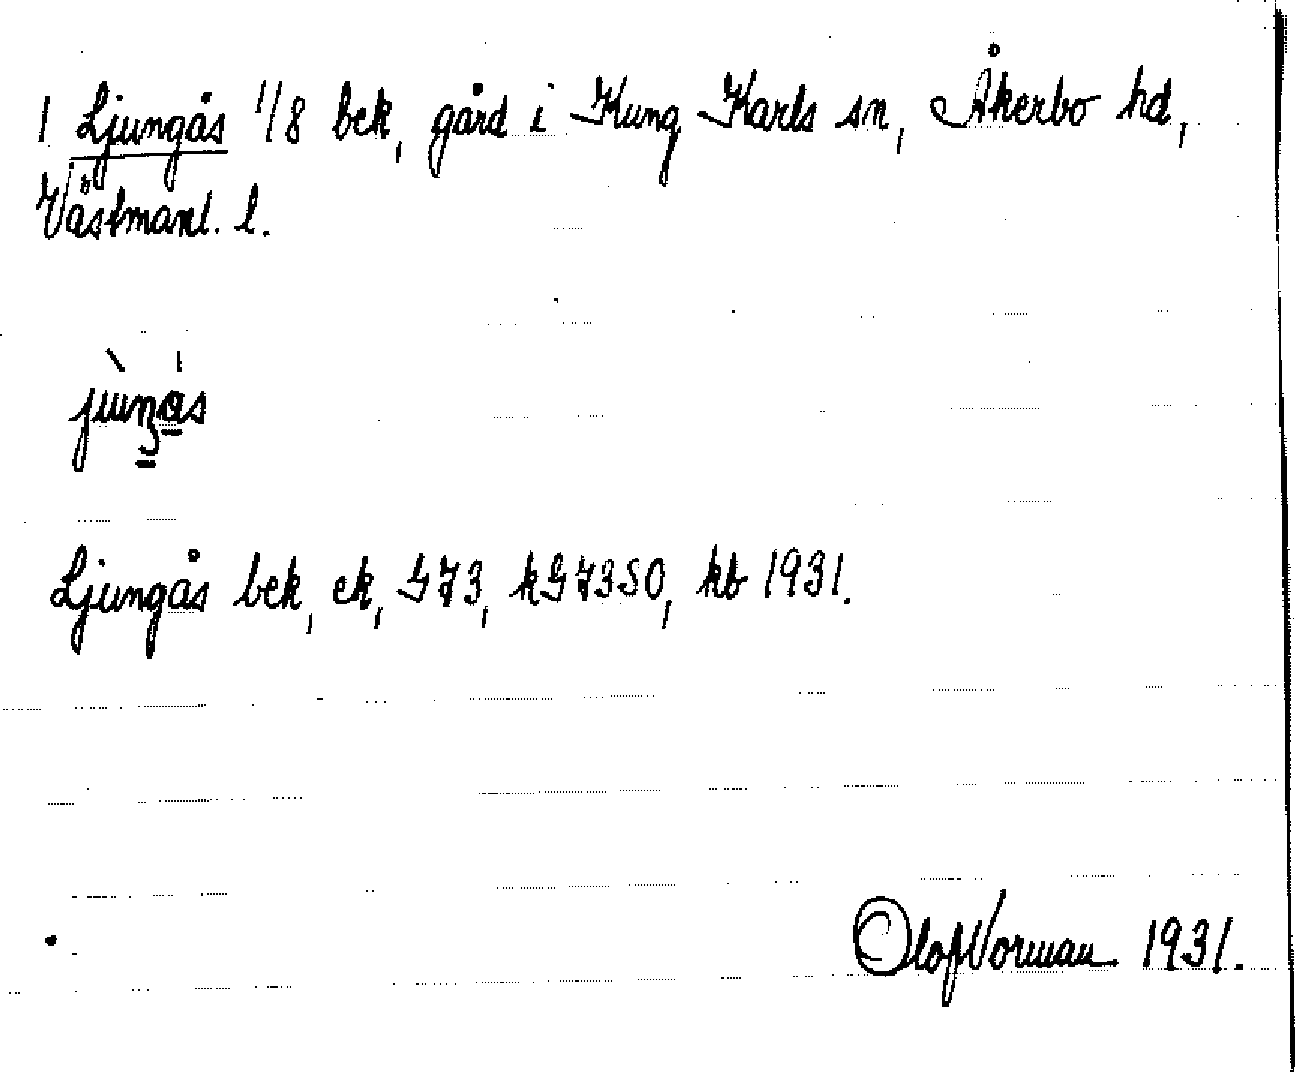 1 Ljungås 1/8 bek, gård i Kung Karls sn, Åkerbo hd,
Västmanl. l.
Ljungås bek, ek, G73, kG73SO, kb 1931.
Olof Vorman 1931.